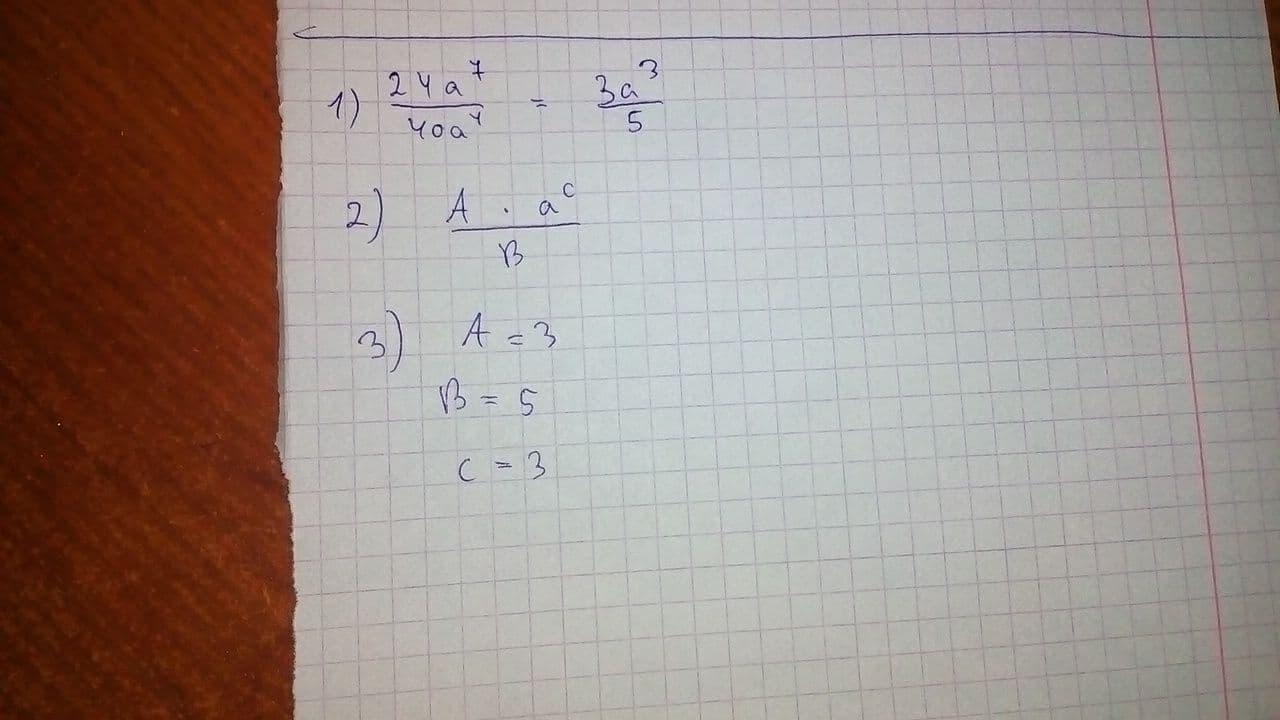 1) 24a⁷/40a⁴ = 3a³/5
2) A · aᶜ/B
3) A = 3
B = 5
c = 3